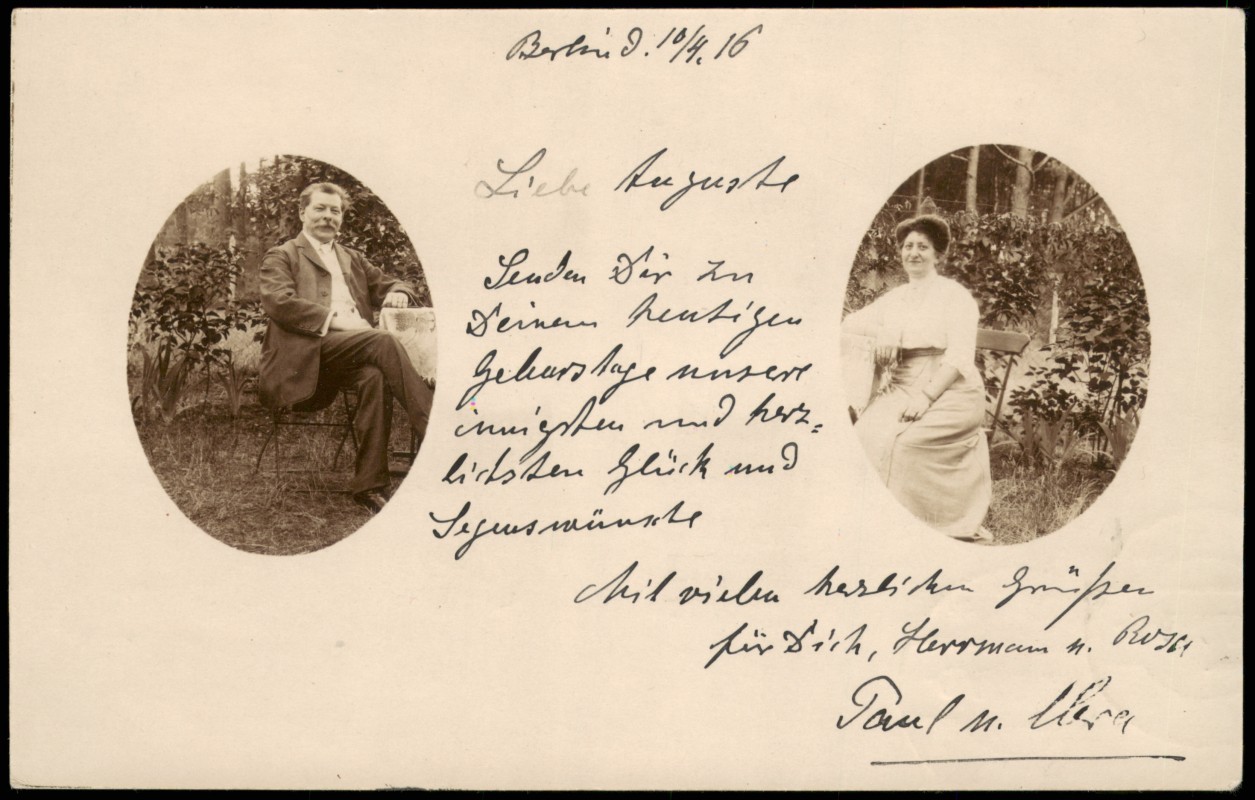 Berlin d. 10/4. 16
Liebe Auguste
Senden Dir zu
Deinem heutigen
Geburstage unsere
innigsten und herz=
lichsten Glück und
Segenswünsche
Mit vielen herzlichen Grüßen
für Dich, Herrmann u. Rosa
Paul u. Clara